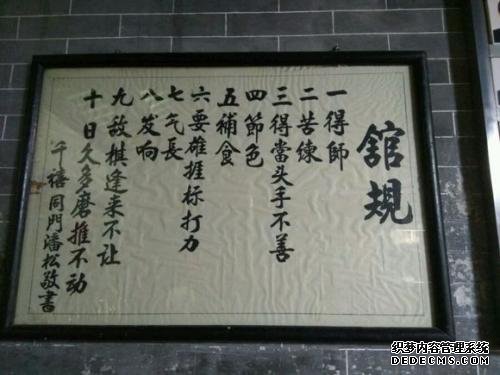 館規
一得師
二苦練
三得當头手不善
四節色
五補食
六要碓捱标打力
七气長
八发向
九敌棋逢来不让
十日久多磨推不动
千禧同門潘松敬書
织梦内容管理系统
DEDECMS.COM